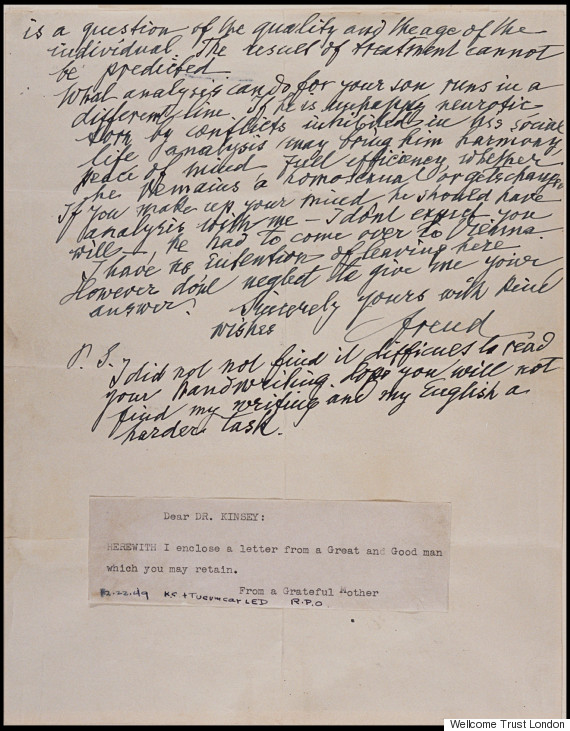 is a question of the quality and the age of the
individual. The result of treatment cannot
be predicted.
What analysis can do for your son runs in a
different line. If he is unhappy neurotic
torn by conflicts inhibited in his social
life analysis may bring him harmony
peace of mind full efficiency, whether
he remains a homosexual or gets changed
If you make up your mind, he should have
analysis with me — I dont expect you
will —, he had to come over to Vienna.
I have no intention of leaving here.
However dont neglect to give me your
answer.
Sincerely yours with kind
wishes
Freud
P. S. I did not not find it difficult to read
your handwriting. Hope you will not
find my writing and my English a
harder task.
Dear DR. KINSEY:
HEREWITH I enclose a letter from a Great and Good man
which you may retain.
From a Grateful Mother
12.22.49 KC + Tucumcari ED R.P.O.
Wellcome Trust London